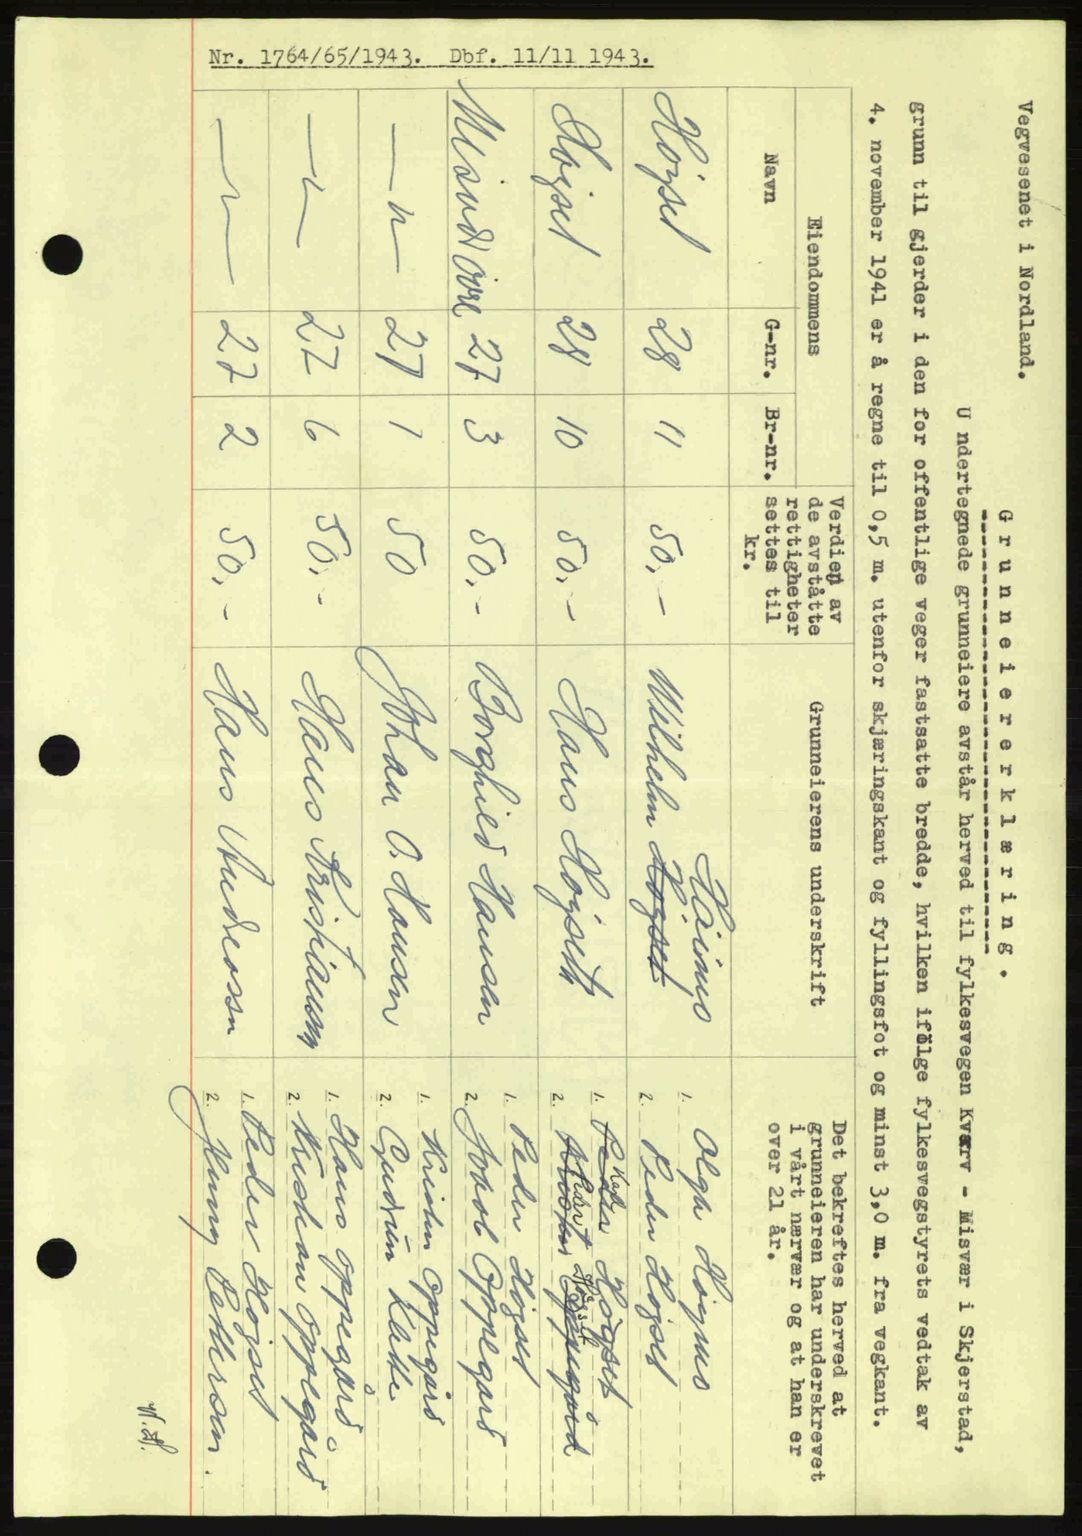 Nr. 1764/65/1943. Dbf. 11/11 1943.
Vegvesenet i Nordland.
Grunneiererklæring.
Undertegnede grunneiere avstår herved til fylkesvegen Kvarv - Misvær i Skjerstad,
grunn til gjerder i den for offentlige veger fastsatte bredde, hvilken ifølge fylkesvegstyrets vedtak av
4. november 1941 er å regne til 0,5 m. utenfor skjæringskant og fyllingsfot og minst 3,0 m. fra vegkant.
Eiendommens
Navn G-nr. Br-nr.
Verdien av
de avståtte
rettigheter
settes til
kr.
Grunneierens underskrift
Det bekreftes herved at
grunneieren har underskrevet
i vårt nærvær og at han er
over 21 år.
Høgset 28 11 50,- Wilhelm Høgset
1. Olga
2. Peder Høgset
Høgset 28 10 50,- Hans Høgseth
1. Peder Høgset
2.
Misvær øvre 27 3 50,- Borghild Hansen
1. Peder Høgset
2. Jakob Oppegård
—"— 27 1 50 Johan O. Hansen
1. Kristen Oppegård
2. Gudrun
—"— 27 6 50,- Hans Kristiansen
1. Hans Oppegård
2. Kristian Oppegård
—"— 27 2 50,- Hans Andreassen
1. Peder Høgset
2.